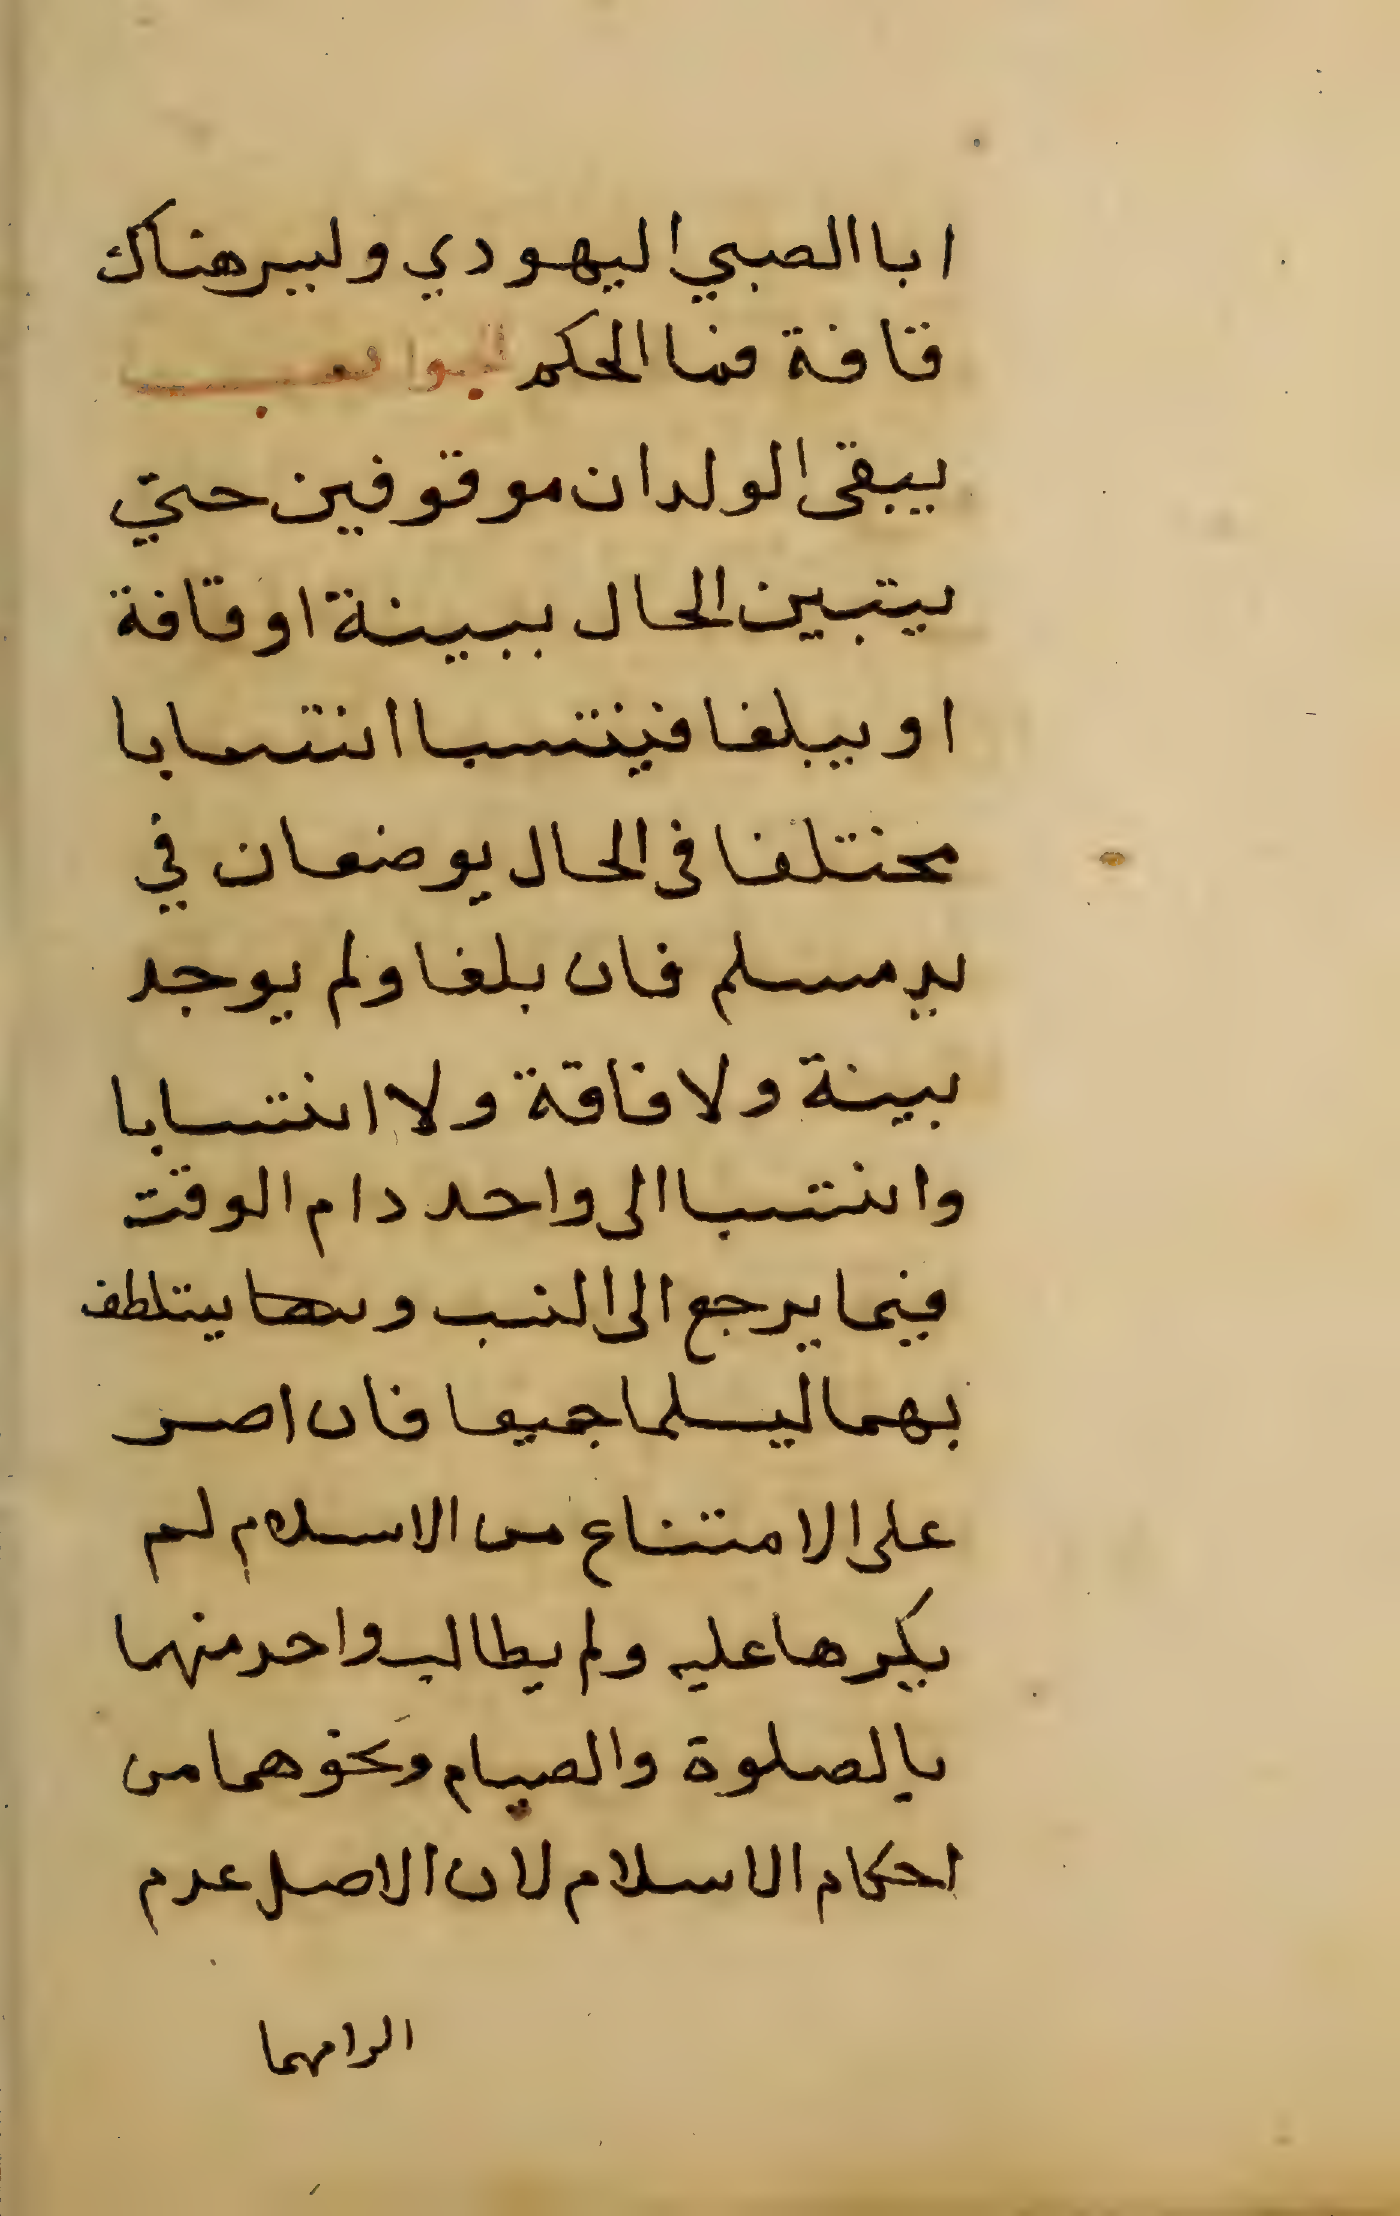 ابا الصبي اليهودي وليس هناك
قافة فما الحكم الجواب
يبقى الولدان موقوفين حتي
يتبين الحال ببينة او قافة
او يبلغا فينتسبا انتسابا
مختلفا فى الحال يوضعان في
يد مسلم فان بلغا ولم يوجد
بينة ولا قافة ولا انتسابا
وانتسبا الى واحد دام الوقت
فيما يرجع الى النسب ويتلطف
بهما ليسلما جميعا فان اصر
على الامتناع من الاسلام لم
يكرها عليه ولم يطالب واحد منهما
بالصلوة والصيام ونحوهما من
احكام الاسلام لان الاصل عدم
الزامهما